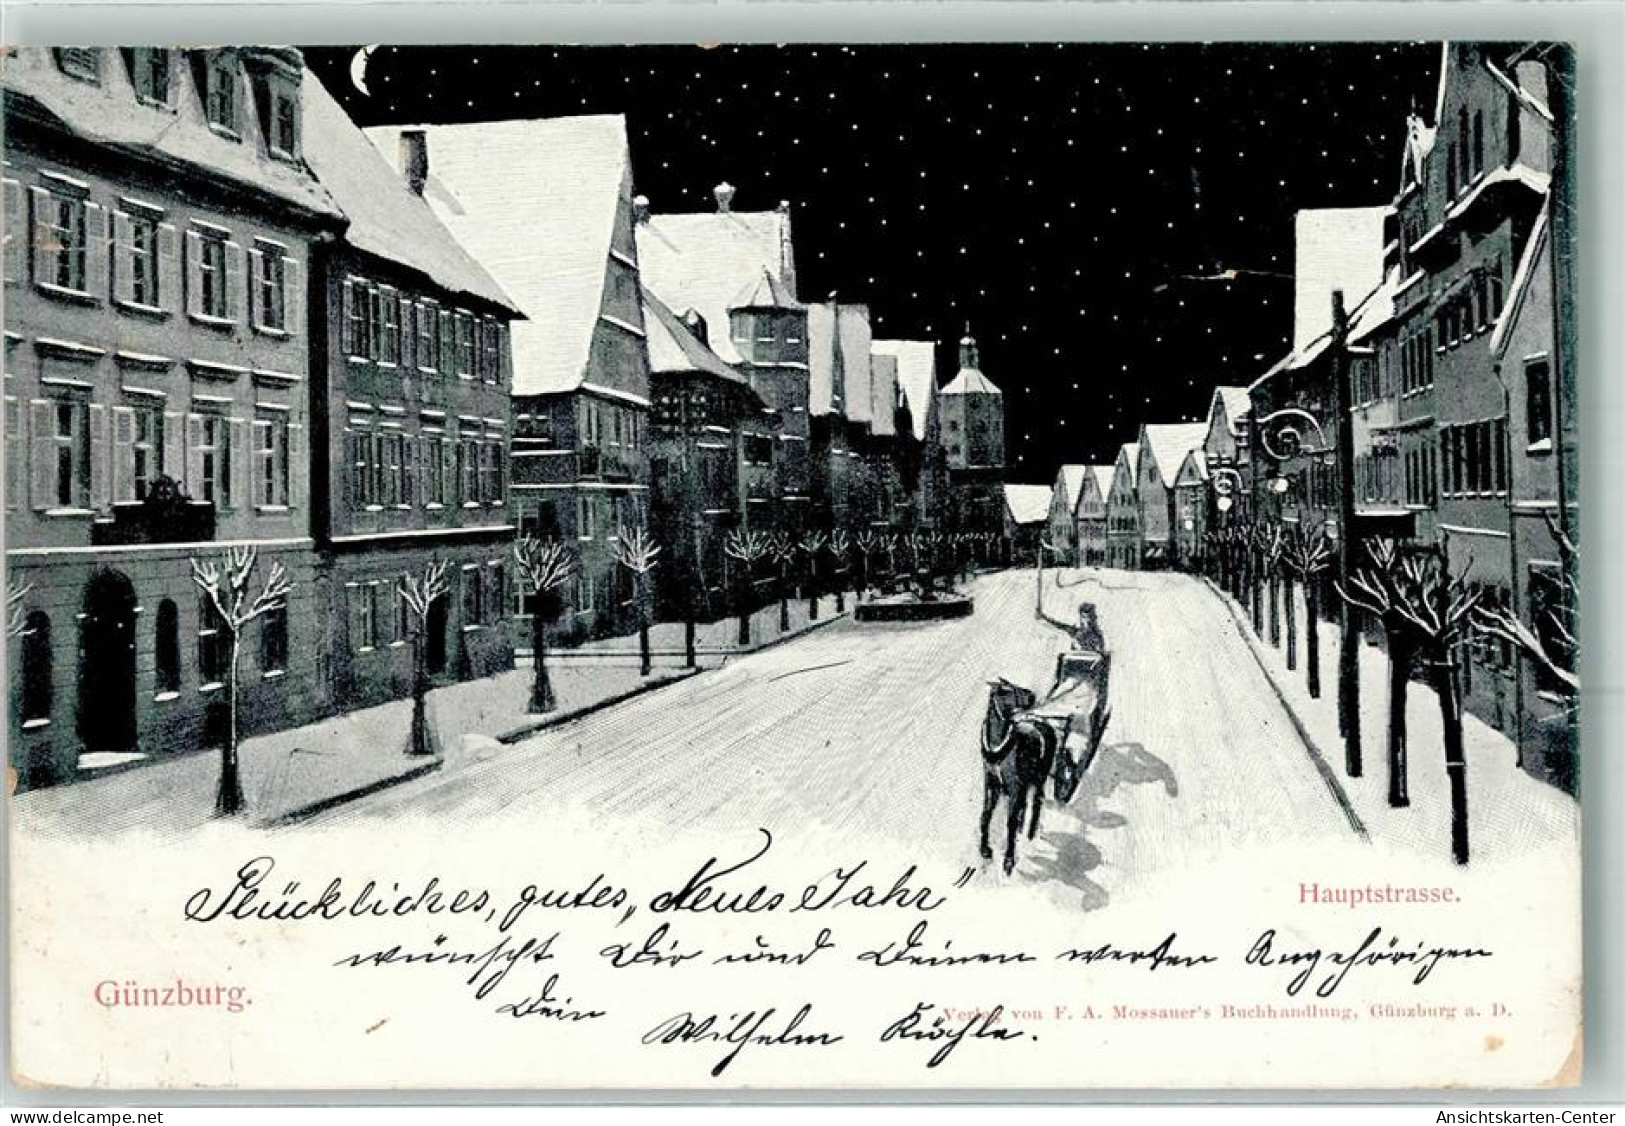 Glückliches, gutes „Neues Jahr”
Hauptstrasse.
wünscht Dir und Deinen werten Angehörigen
Günzburg.
Dein
Verlag von F. A. Mossauer's Buchhandlung, Günzburg a. D.
Wilhelm
delcampe.net
Ansichtskarten-Center